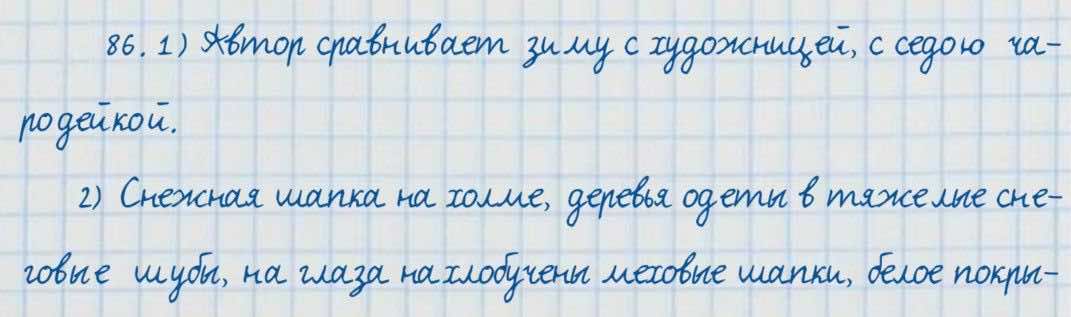 86. 1) Автор сравнивает зиму с художницей, с седою ча-
родейкой.
2) Снежная шапка на холме, деревья одеты в тяжелые сне-
говые шубы, на глаза нахлобучены меховые шапки, белое покры-